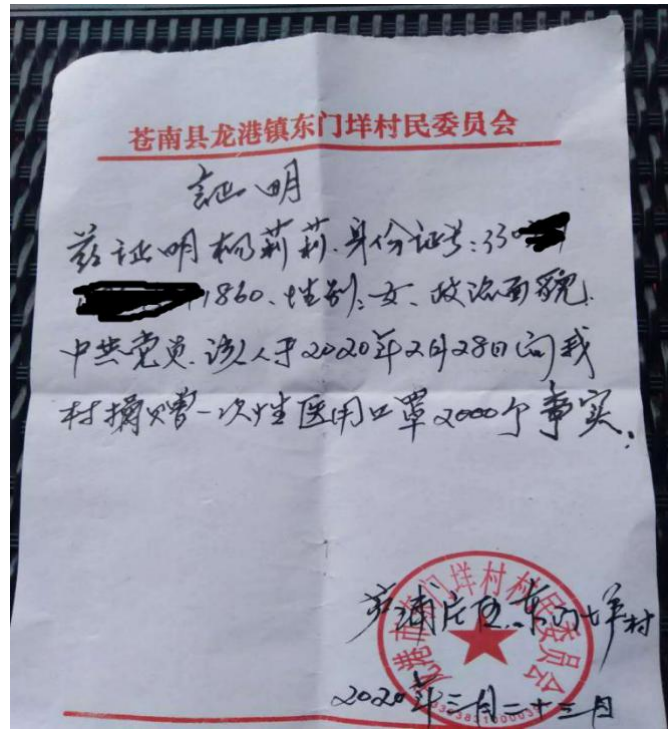 苍南县龙港镇东门垟村民委员会
证明
兹证明杨莉莉.身份证号:330
1860、性别:女、政治面貌.
中共党员.该人于2020年2月28日向我
村捐赠一次性医用口罩2000个事实.
芦浦片区.东门垟村
龙港市东门垟村村民委员会
2020年三月二十三日